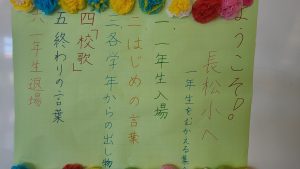 ようこそ。
長松小へ
一年生をむかえる集
一 一年生入場
二 はじめの言葉
三 各学年からの出し物
四 「校歌」
五 終わりの言葉
六 一年生退場